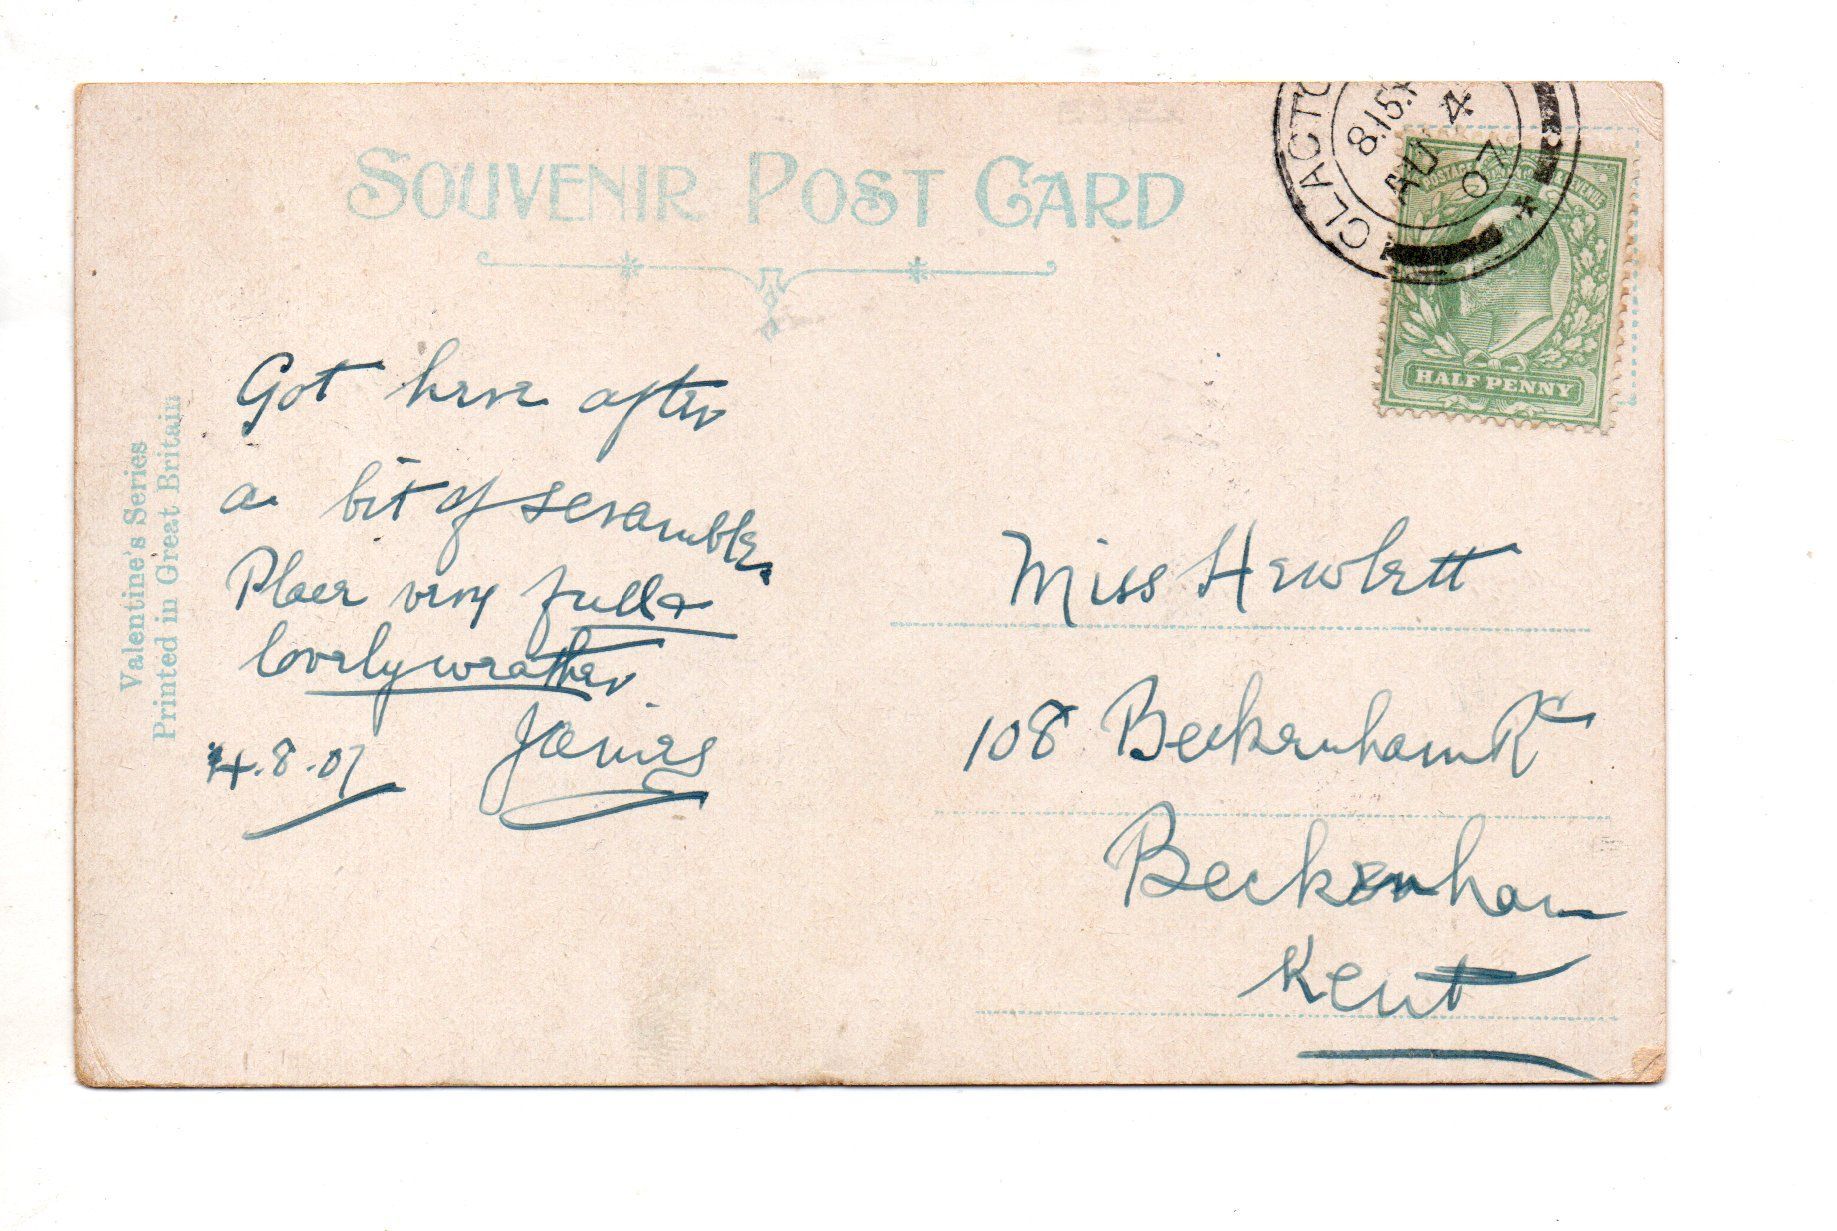 SOUVENIR POST CARD
Valentine's Series
Printed in Great Britain
CLACTO
8.15
AU 4
07
HALF PENNY
Got here after
a bit of scramble.
Place very full &
lovely weather.
4.8.07
Miss Hewlett
108 Beckenham Rd
Beckenham
Kent